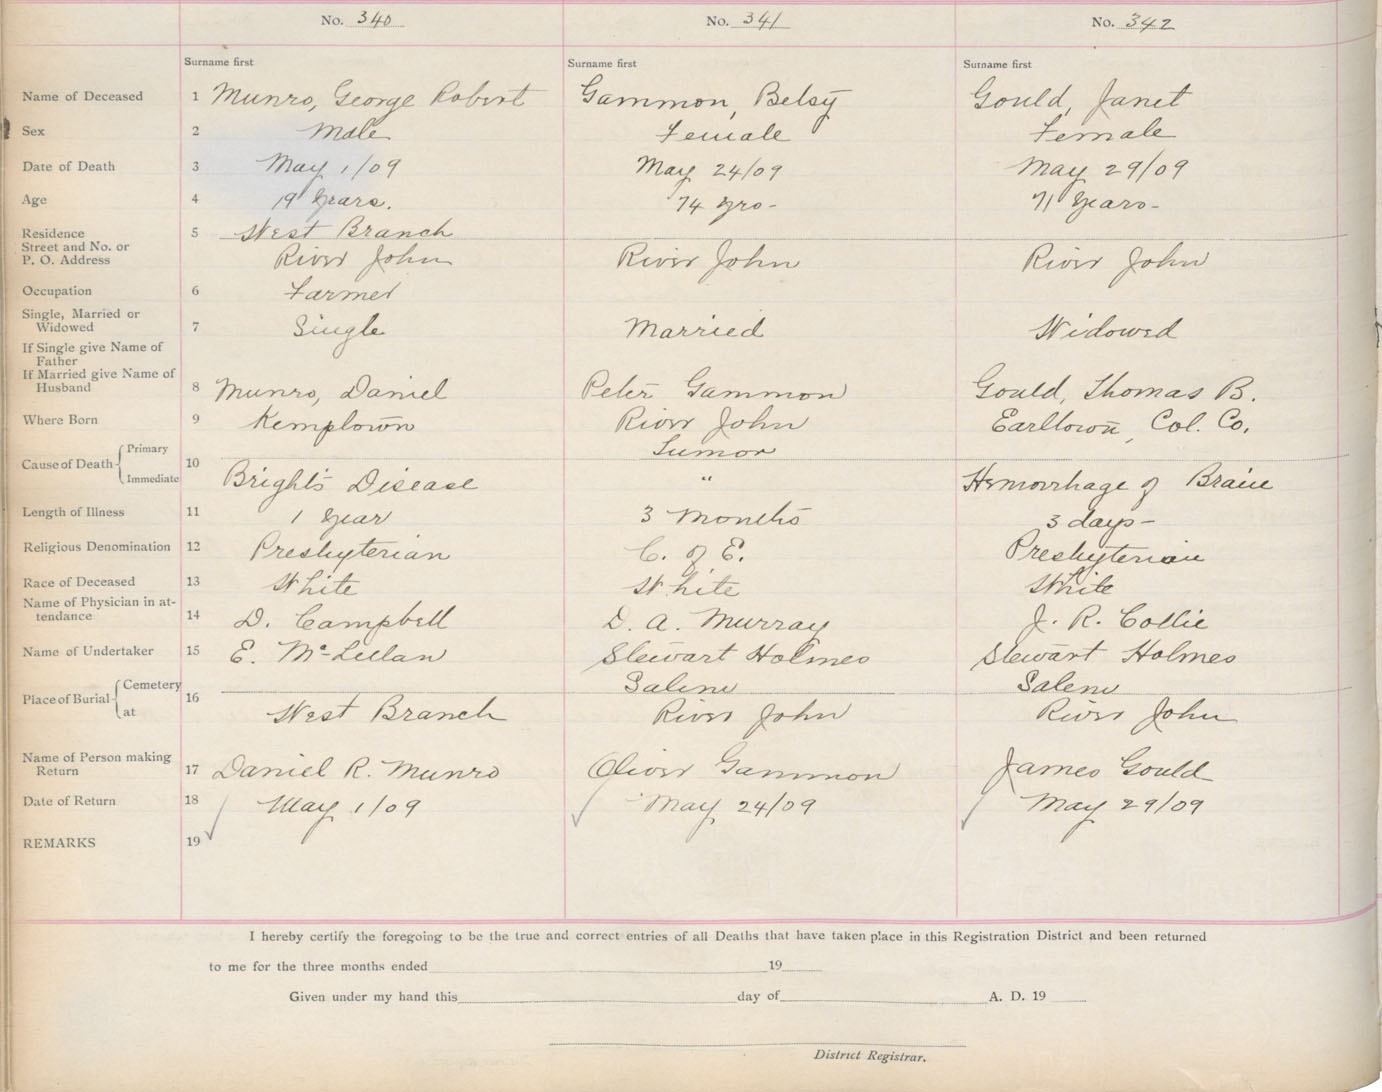 No. 340 No. 341 No. 342
Surname first Surname first Surname first
Name of Deceased 1 Munro, George Robert Gammon, Betsy Gould, Janet
Sex 2 Male Female Female
Date of Death 3 May 1/09 May 24/09 May 29/09
Age 4 19 Years. 74 yrs- 71 Years-
Residence 5 West Branch
Street and No. or
P. O. Address River John River John River John
Occupation 6 Farmer
Single, Married or
Widowed 7 Single Married Widowed
If Single give Name of
Father
If Married give Name of
Husband 8 Munro, Daniel Peter Gammon Gould, Thomas B.
Where Born 9 Kemptown River John Earltown, Col. Co.
Cause of Death Primary 10 Tumor
Immediate Bright's Disease " Hemorrhage of Brain
Length of Illness 11 1 Year 3 Months 3 days-
Religious Denomination 12 Presbyterian C. of E. Presbyterian
Race of Deceased 13 White White White
Name of Physician in at-
tendance 14 D. Campbell D. A. Murray J. R. Collie
Name of Undertaker 15 E. McLellan Stewart Holmes Stewart Holmes
Place of Burial Cemetery 16 Salem Salem
at West Branch River John River John
Name of Person making
Return 17 Daniel R. Munro Oliver Gammon James Gould
Date of Return 18 May 1/09 May 24/09 May 29/09
REMARKS 19
I hereby certify the foregoing to be the true and correct entries of all Deaths that have taken place in this Registration District and been returned
to me for the three months ended 19
Given under my hand this day of A. D. 19
District Registrar.